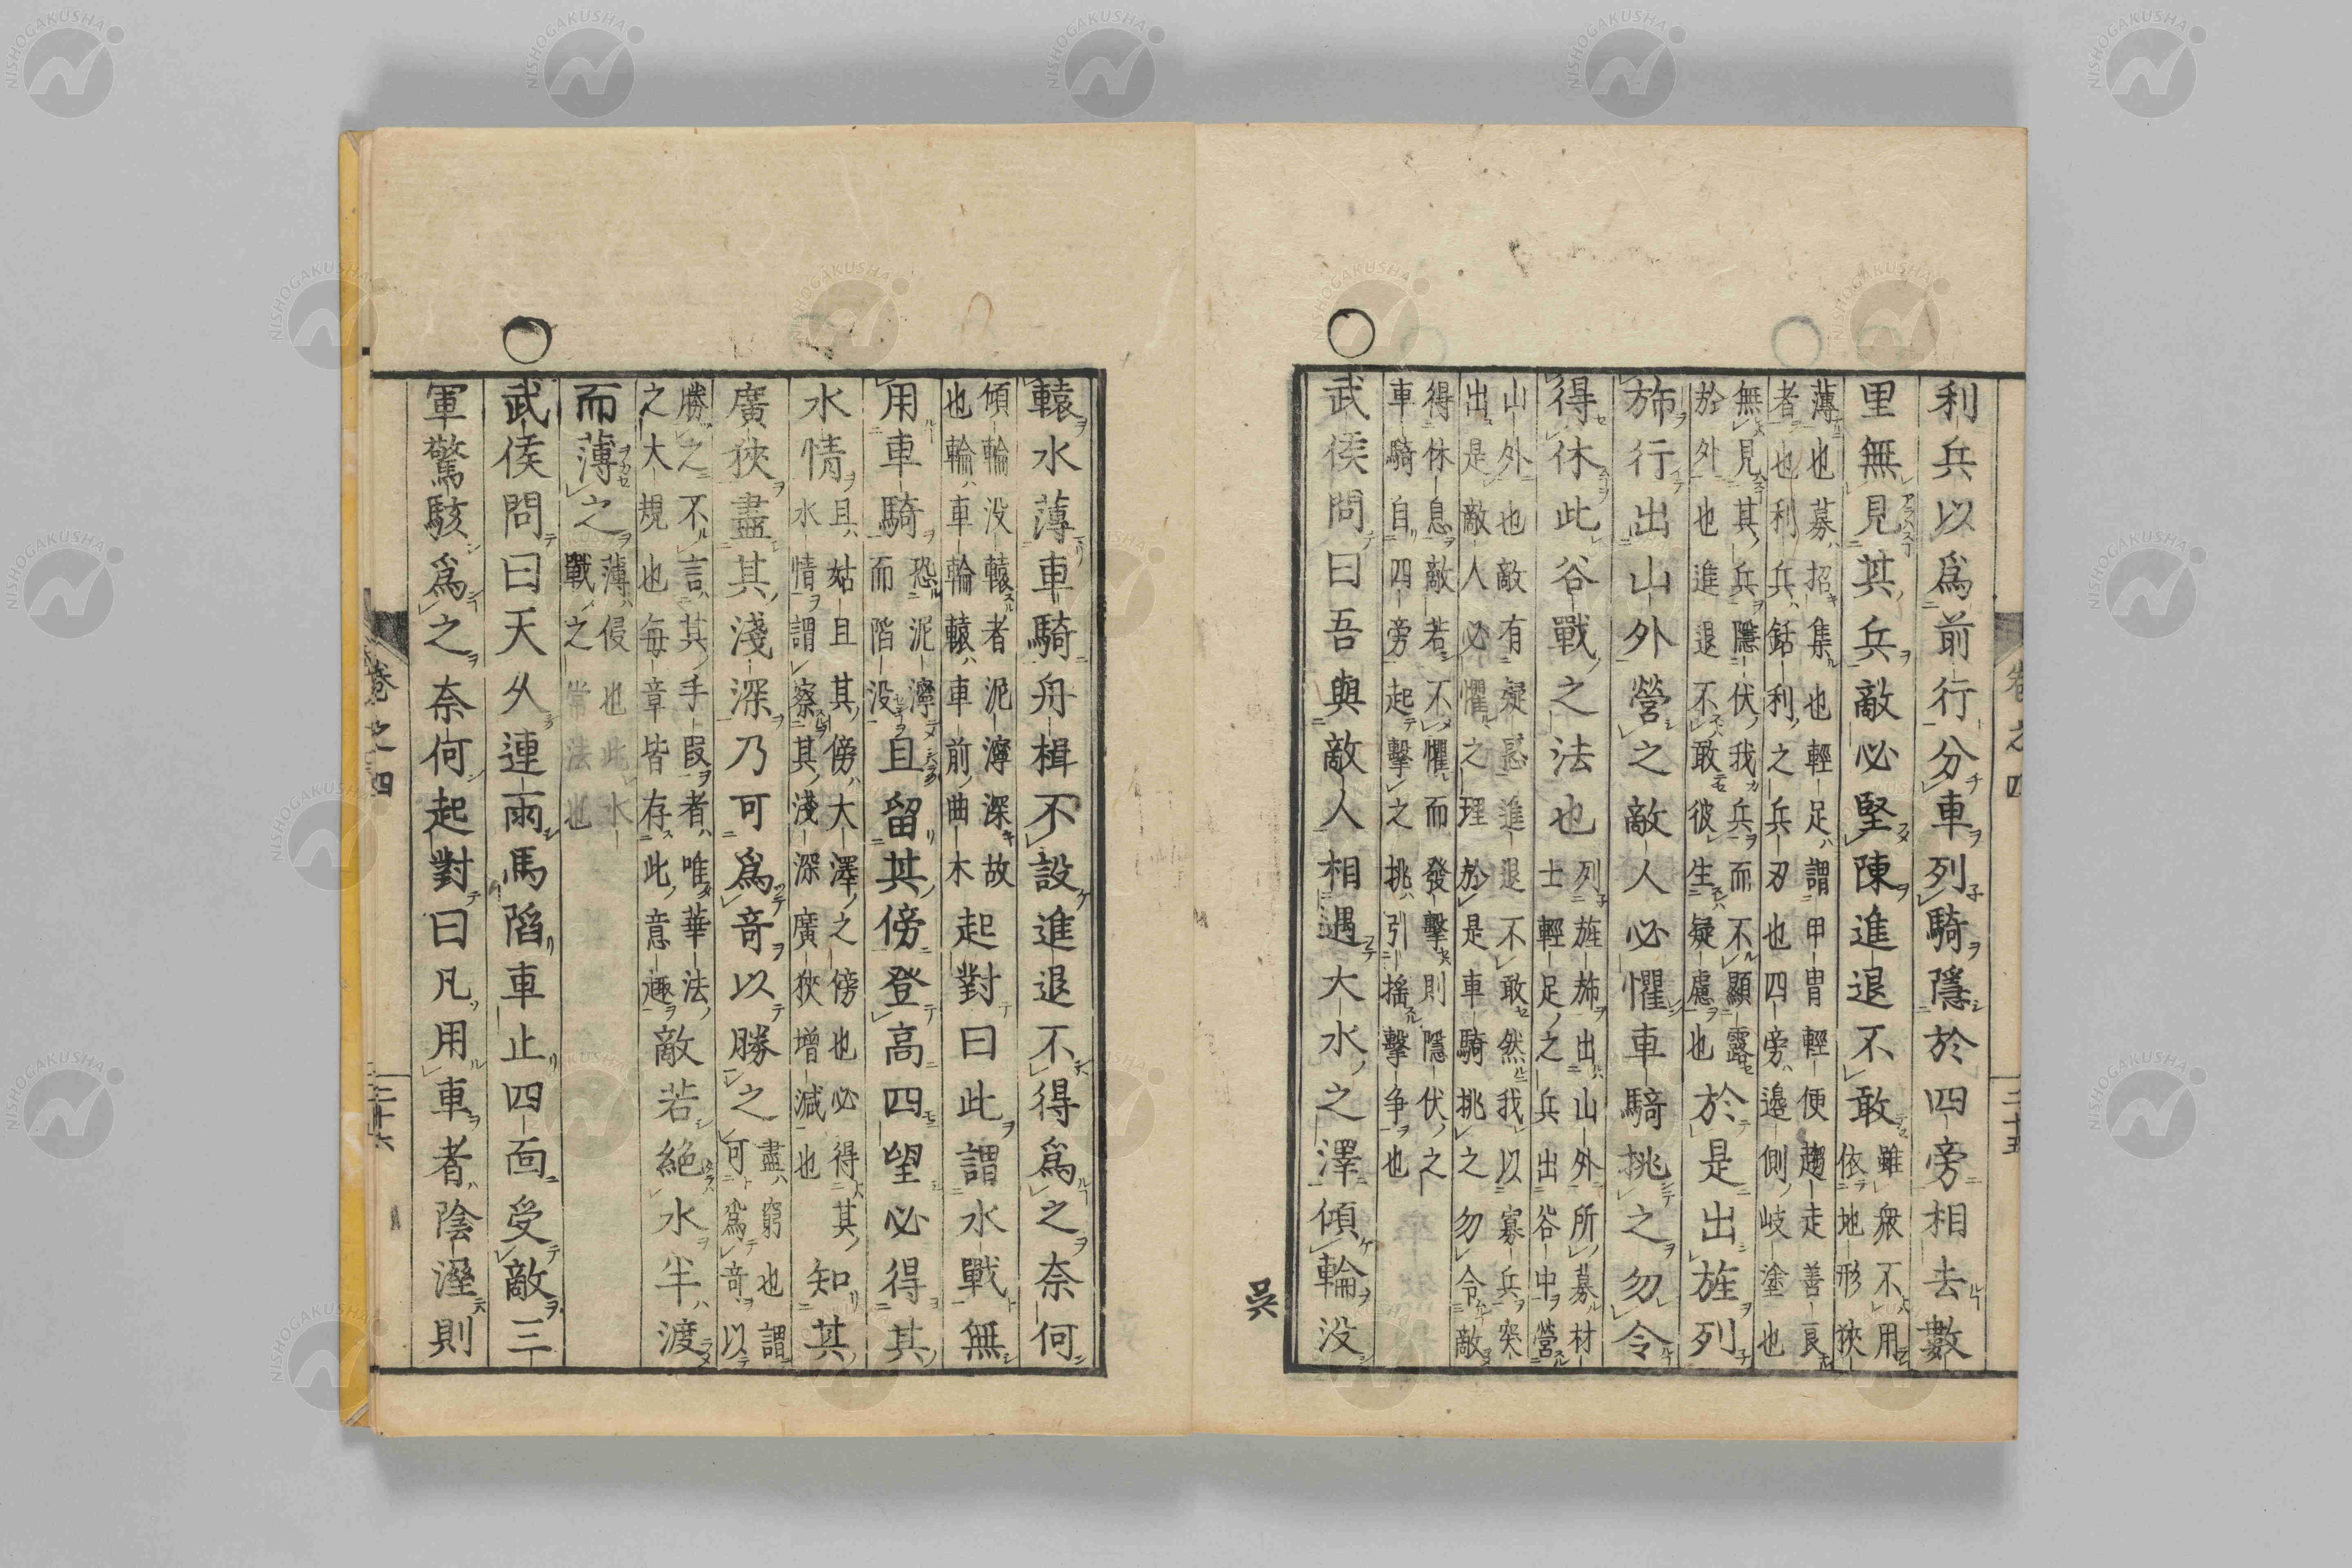 利兵以爲前行分車列騎隱於四旁相去數
里無見其兵敵必堅陳進退不敢雖衆不用
依地形狹
薄也募招集也輕足謂甲冑輕便趨走善良
者也利兵銛利之兵刃也四旁邊側岐塗也
無見其兵隱伏我兵而不顯露
於外也進退不敢彼生疑慮也於是出旌列
旆行出山外營之敵人必懼車騎挑之勿令
得休此谷戰之法也列旌旆出山外所募材
士輕足之兵出谷中營
山外也敵有疑惑進退不敢然我以寡兵突
出是敵人必懼之理於是車騎挑之勿令敵
得休息敵若不懼而發擊則隱伏之
車騎自四旁起擊之挑引搖擊争也
武侯問曰吾與敵人相遇大水之澤傾輪没
吳
轅水薄車騎舟楫不設進退不得爲之奈何
傾輪没轅者泥濘深故
也輪車輪轅車前曲木起對曰此謂水戰無
用車騎恐泥濘
而陷没且留其傍登高四望必得其
水情且姑且其傍大澤之傍也必得其
水情謂察其淺深廣狹增減也知其
廣狹盡其淺深乃可爲奇以勝之盡窮也謂
可爲奇以
勝之不言其手段者唯華法
之大規也每章皆存此意趣敵若絶水半渡
而薄之薄侵也此水
戰之常法也
武侯問曰天久連雨馬陷車止四面受敵三
軍驚駭爲之奈何起對曰凡用車者陰溼則
卷之四
二十六
卷之四
二十五